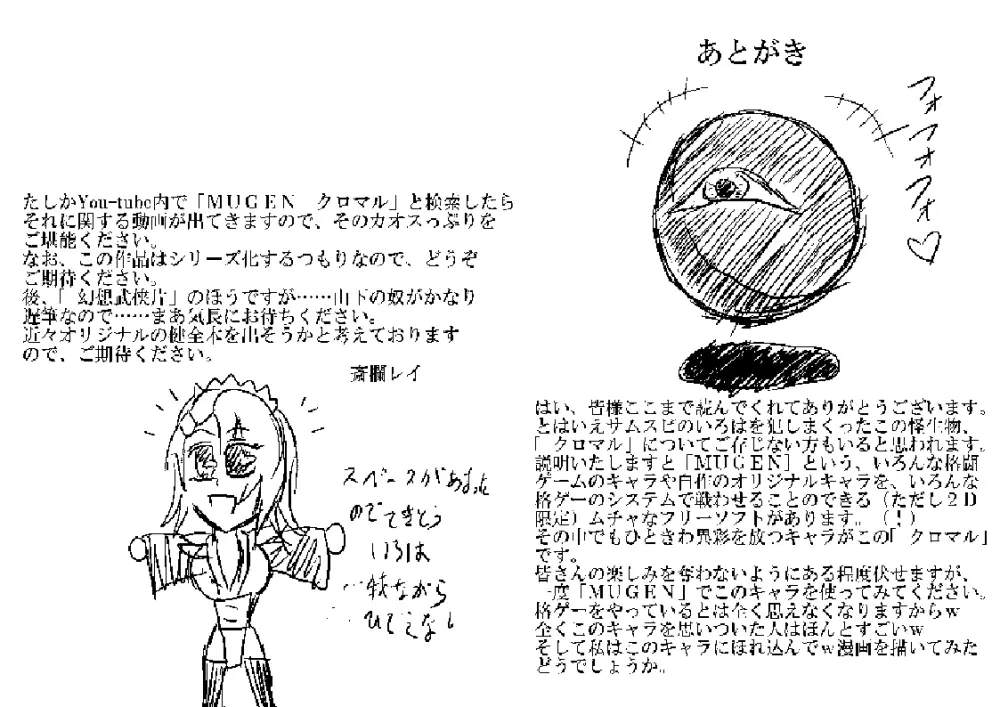 あとがき
フォフォフォ♡
はい、皆様ここまで読んでくれてありがとうございます。
とはいえサムスピのいろはを犯しまくったこの怪生物、
「クロマル」についてご存じない方もいると思われます。
説明いたしますと「ＭＵＧＥＮ」という、いろんな格闘
ゲームのキャラや自作のオリジナルキャラを、いろんな
格ゲーのシステムで戦わせることのできる（ただし２Ｄ
限定）ムチャなフリーソフトがあります。（！）
その中でもひときわ異彩を放つキャラがこの「クロマル」
です。
皆さんの楽しみを奪わないようにある程度伏せますが、
一度「ＭＵＧＥＮ」でこのキャラを使ってみてください。
格ゲーをやっているとは全く思えなくなりますからｗ
全くこのキャラを思いついた人はほんとすごいｗ
そして私はこのキャラにほれ込んでｗ漫画を描いてみた
どうでしょうか。
たしかYou-tube内で「ＭＵＧＥＮ　クロマル」と検索したら
それに関する動画が出てきますので、そのカオスっぷりを
ご堪能ください。
なお、この作品はシリーズ化するつもりなので、どうぞ
ご期待ください。
後、「幻想武侠片」のほうですが……山下の奴がかなり
遅筆なので……まあ気長にお待ちください。
近々オリジナルの健全本を出そうかと考えております
ので、ご期待ください。
斎欄レイ
スペースがあまった
のでてきとう
いろは
…我ながら
ひでえなし